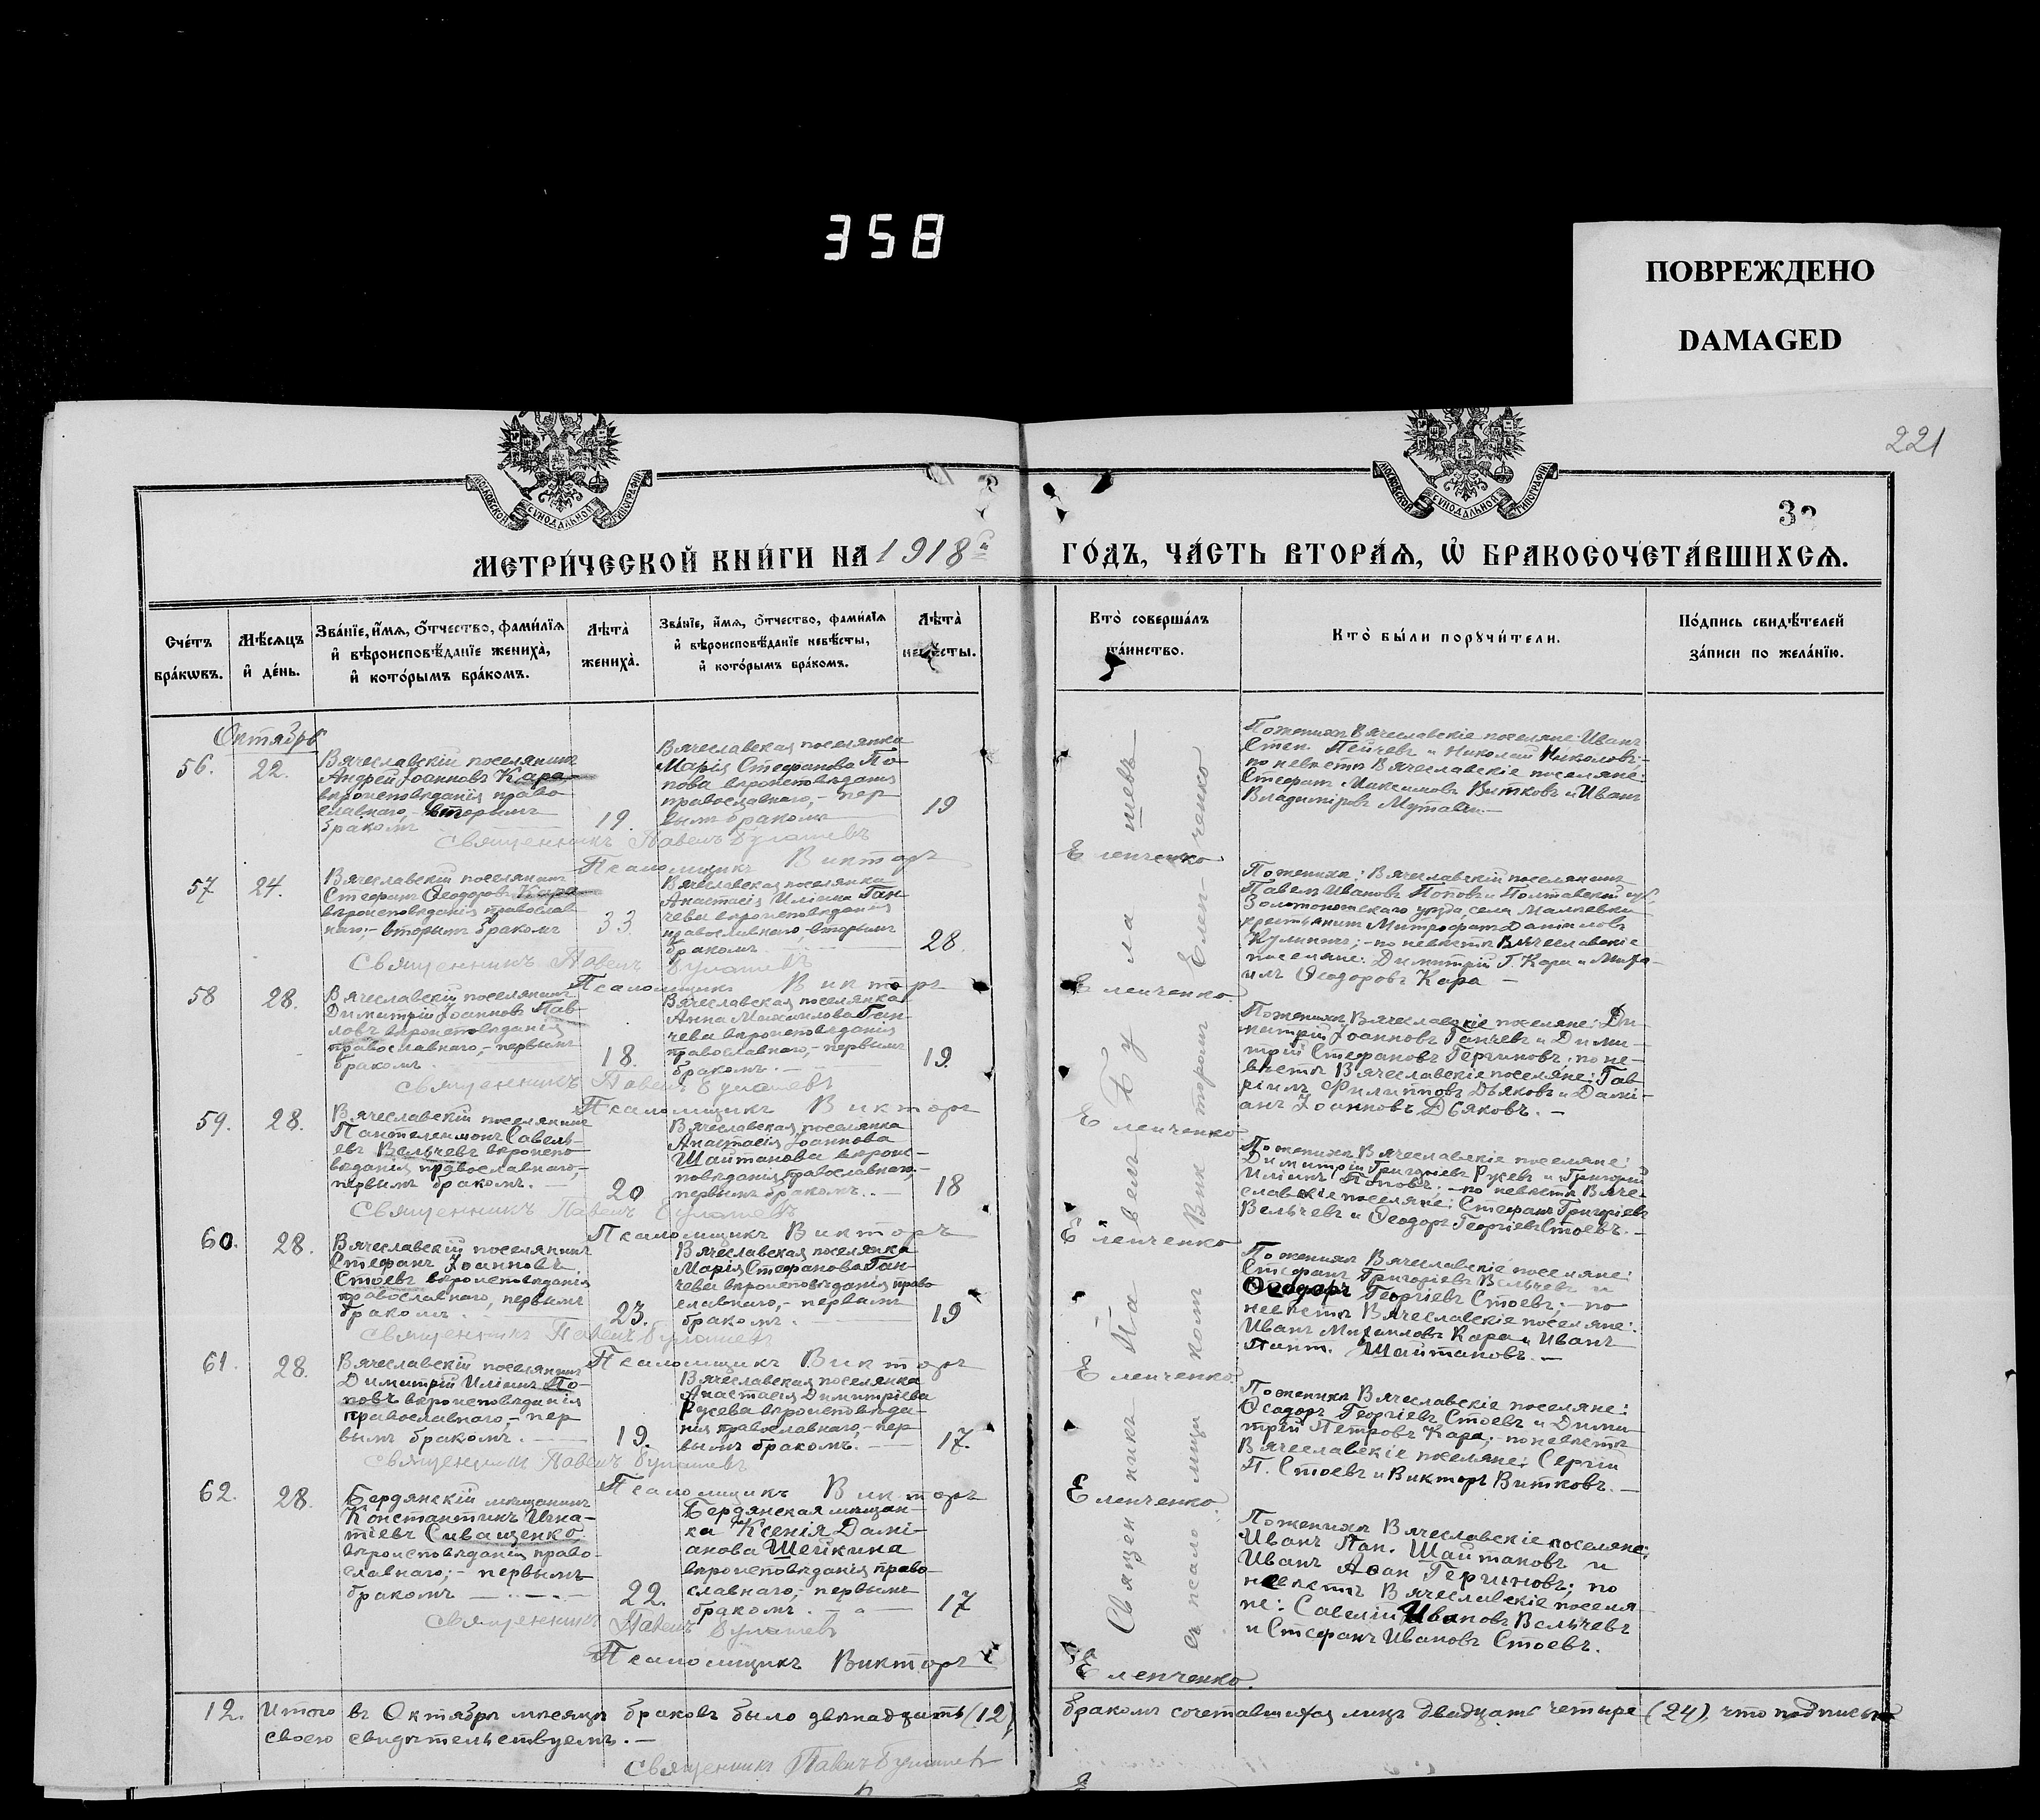 358
ПОВРЕЖДЕНО
DAMAGED
221
МОСКОВСКОЙ СѴНОДАЛЬНОЙ ТИПОГРАФІИ
МОСКОВСКОЙ СѴНОДАЛЬНОЙ ТИПОГРАФІИ
МЕТРИ́ЧЕСКОЙ КНИ́ГИ НА 1918 й
ГО́ДЪ, ЧА́СТЬ ВТОРА́Я, Ѽ БРАКОСОЧЕТА́ВШИХСЯ.
Сче́тъ бра́кѡвъ.
Мѣ́сяцъ и҆ де́нь.
Зва́нїе, и҆́мя, о҆́тчество, фами́лїя
и҆ вѣроисповѣ́данїе жениха̀,
и҆ кото́рымъ бра́комъ.
Лѣта̀ жениха̀.
Зва́нїе, и҆́мя, о҆́тчество, фами́лїя
и҆ вѣроисповѣ́данїе невѣ́сты,
и҆ кото́рымъ бра́комъ.
Лѣта̀ невѣ́сты.
Кто̀ соверша́лъ
та́инство.
Кто̀ бы́ли порꙋчи́тели.
По́дпись свидѣ́телей
за́писи по жела́нїю.
Октябрь
56.
22.
Вячеславскій поселянинъ
Андрей Іоанновъ Кара
вѣроисповѣданія право
славнаго, вторымъ
бракомъ
19.
Вячеславская поселянка
Марія Стефанова По-
пова вѣроисповѣданія
православнаго, - пер
вымъ бракомъ
19
Священникъ Павелъ Булашевъ
Псаломщикъ Викторъ
Еленченко
По женихѣ Вячеславскіе поселяне: Иванъ
Степ. Пейчевъ и Николай Николовъ;
по невѣстѣ Вячеславскіе поселяне:
Стефанъ Максимовъ Витковъ и Иванъ
Владиміровъ
57
24.
Вячеславскій поселянинъ
Стефанъ Ѳеодоровъ Кара
вѣроисповѣданія православ
наго; - вторымъ бракомъ
33.
Вячеславская поселянка
Анастасія Иліина Ган-
чева вѣроисповѣданія
православнаго, - вторымъ
бракомъ
28.
Священникъ Павелъ Булашевъ
Псаломщикъ Викторъ
Еленченко.
По женихѣ: Вячеславскій поселянинъ
Павелъ Ивановъ Поповъ и Полтавской губ.
Золотоношскаго уѣзда, села
крестьянинъ Митрофанъ Даниловъ
; - по невѣстѣ Вячеславскіе
поселяне: Димитрій Г. Кара и Миха-
илъ Ѳеодоровъ Кара -
58
28.
Вячеславскій поселянинъ
Димитрій Іоанновъ Пав-
ловъ вѣроисповѣданія
православнаго, - первымъ
бракомъ.
18.
Вячеславская поселянка
Анна Михаилова Ган-
чева вѣроисповѣданія
православнаго, - первымъ
бракомъ.
19.
Священникъ Павелъ Булашевъ
Псаломщикъ Викторъ
Еленченко
По женихѣ Вячеславскіе поселяне: Ди-
митрій Іоанновъ Ганчевъ и Дими-
трій Стефановъ Гергиновъ; по не-
вѣстѣ Вячеславскіе поселяне: Гав
ріилъ Филипповъ Дьяковъ и Дамі-
анъ Іоанновъ Дьяковъ. -
59.
28.
Вячеславскій поселянинъ
Пантелеимонъ Савель-
евъ Вельчевъ вѣроиспо-
вѣданія православнаго, -
первымъ бракомъ. -
20
Вячеславская поселянка
Анастасія Іоаннова
Шайтанова вѣроис-
повѣданія православнаго, -
первымъ бракомъ. -
18
Священникъ Павелъ Булашевъ
Псаломщикъ Викторъ
Еленченко
По женихѣ Вячеславскіе поселяне:
Димитрій Григоріевъ Русевъ и Григорій
Иліинъ Поповъ; - по невѣстѣ Вяче-
славскіе поселяне: Стефанъ Григоріевъ
Вельчевъ и Ѳеодоръ Георгіевъ Стоевъ. -
60.
28.
Вячеславскій поселянинъ
Стефанъ Іоанновъ
Стоевъ вѣроисповѣданія
православнаго, первымъ
бракомъ.
23.
Вячеславская поселянка
Марія Стефанова Ган-
чева вѣроисповѣданія право
славнаго, - первымъ
бракомъ.
19
Священникъ Павелъ Булашевъ
Псаломщикъ Викторъ
Еленченко.
По женихѣ Вячеславскіе поселяне:
Стефанъ Григоріевъ Вельчевъ и
Ѳеодоръ Георгіевъ Стоевъ; - по
невѣстѣ Вячеславскіе поселяне:
Иванъ Михаиловъ Кара и Иванъ
Пант. Шайтановъ. -
61.
28.
Вячеславскій поселянинъ
Димитрій Иліинъ По-
повъ вѣроисповѣданія
православнаго, - пер
вымъ бракомъ.
19.
Вячеславская поселянка
Анастасія Димитріева
Русева вѣроисповѣда-
нія православнаго, - пер
вымъ бракомъ. -
17.
Священникъ Павелъ Булашевъ
Псаломщикъ Викторъ
Еленченко.
По женихѣ Вячеславскіе поселяне:
Ѳеодоръ Георгіевъ Стоевъ и Дими-
трій Петровъ Кара; - по невѣстѣ
Вячеславскіе поселяне: Сергій
П. Стоевъ и Викторъ Витковъ. -
62.
28.
Бердянскій мѣщанинъ
Константинъ Игна-
тіевъ Сиващенко
вѣроисповѣданія право-
славнаго; - первымъ
бракомъ
22.
Бердянская мѣщан-
ка Ксенія Дамі-
анова Шейкина
вѣроисповѣданія право-
славнаго, - первымъ
бракомъ.
17
Священникъ Павелъ Булашевъ
Псаломщикъ Викторъ
Еленченко.
По женихѣ Вячеславскіе поселяне:
Иванъ Пан. Шайтановъ и
Иванъ Гергиновъ; по
невѣстѣ Вячеславскіе поселя
не: Савелій Ивановъ Вельчевъ
и Стефанъ Ивановъ Стоевъ.
Священникъ Павелъ Булашевъ
съ псаломщикомъ Викторомъ Еленченко
12. Итого въ Октябрѣ мѣсяцѣ браковъ было двѣнадцать (12), бракомъ сочетавшихся лицъ двадцать четыре (24), что подписью
своею свидѣтельствуемъ. -
Священникъ Павелъ Булашевъ